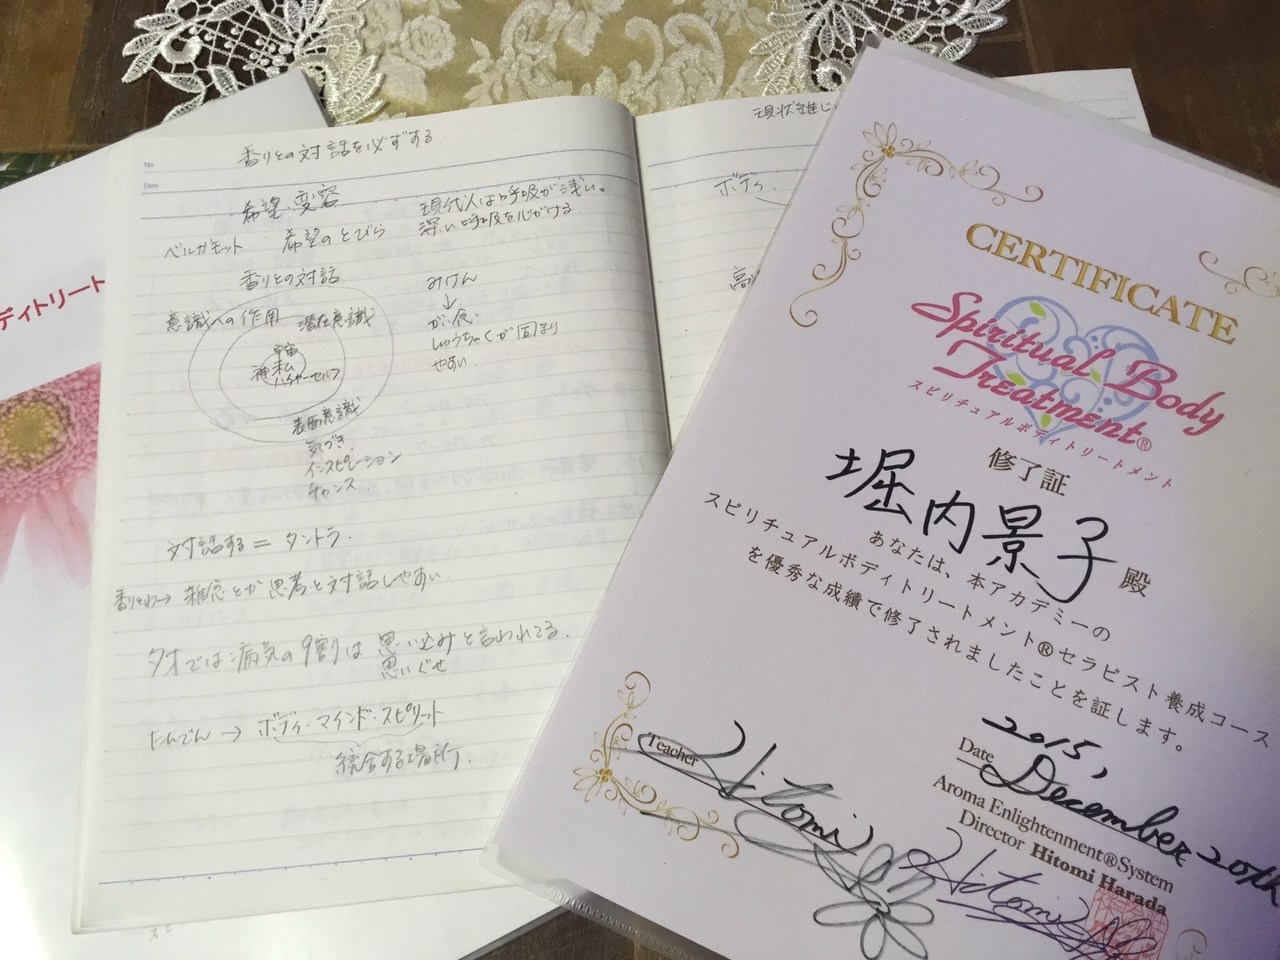 ディトリート
香りとの対話を必ずする
希望、変容
ベルガモット 希望のとびら
現代人は呼吸が浅い。
深い呼吸を心がける
香りとの対話
意識への作用 潜在意識
宇宙
神 私
ハイヤーセルフ
表面意識
気づき
インスピレーション
チャンス
みけん
↓
が、念
しゅうちゃくが固まり
やすい
対話する = タントラ.
雑念とか思考と対話しやすい.
タオでは病気の9割は思い込みと言われてる.
思いぐせ
たんでん → ボディ・マインド・スピリット
統合する場所.
No.
Date
現状維
ボディ.
CERTIFICATE
Spiritual Body
Treatment®
スピリチュアルボディトリートメント
修了証
堀内景子 殿
あなたは、本アカデミーの
スピリチュアルボディトリートメント®セラピスト養成コース
を優秀な成績で修了されましたことを証します。
2015,
Date December 20th
Aroma Enlightenment®System
Director Hitomi Harada
Teacher Hitomi
Hitomi